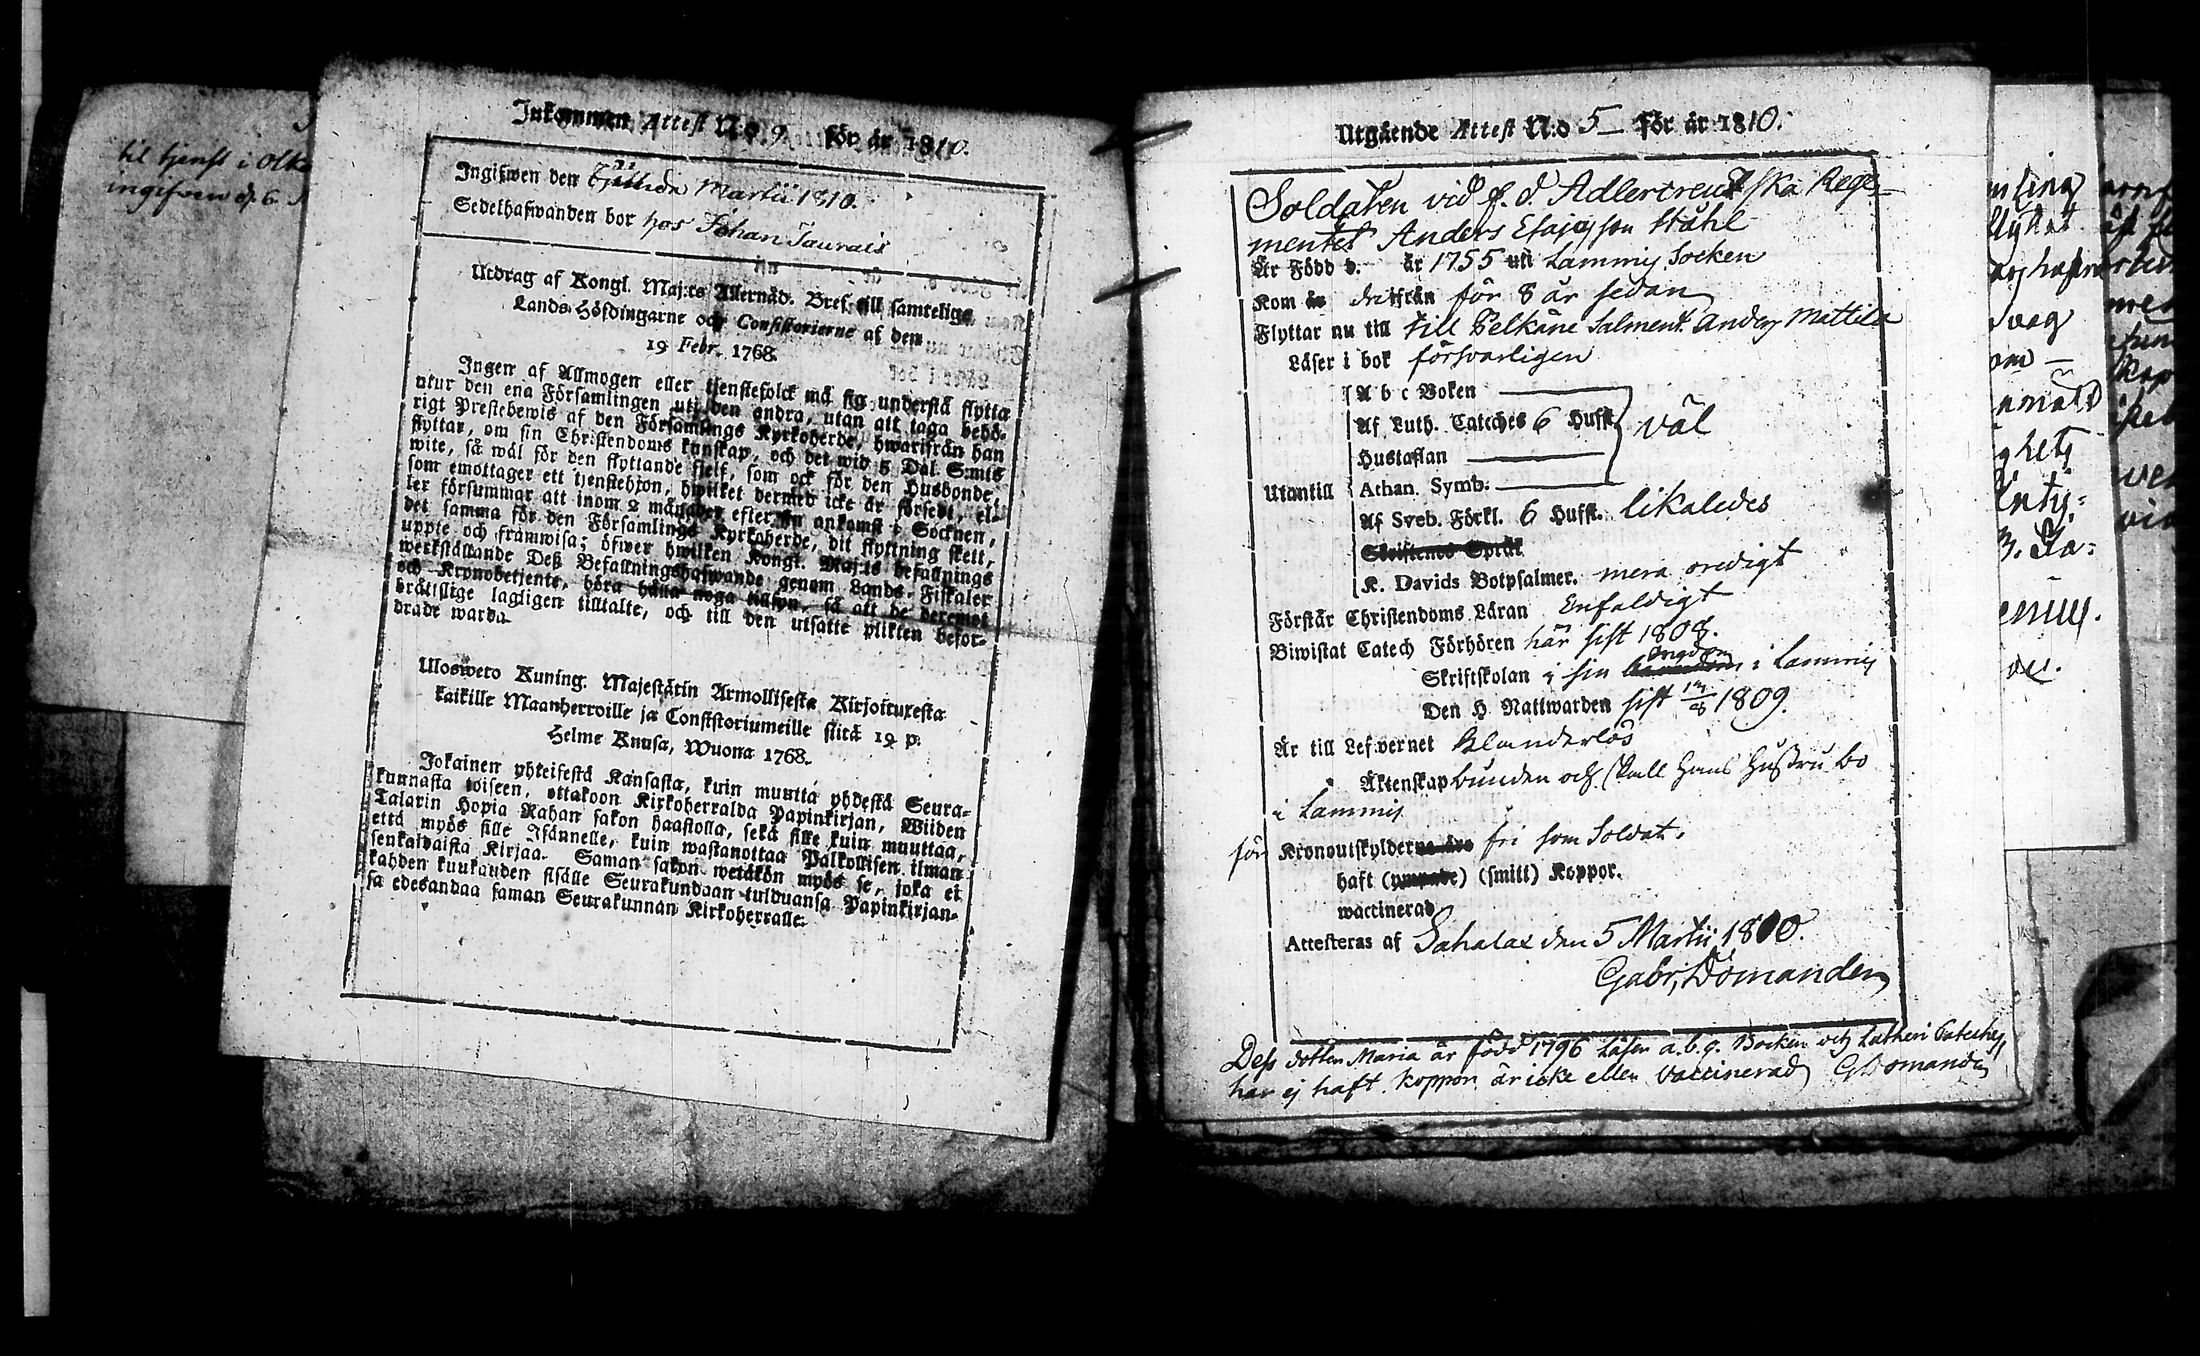 til tjenst i Olka
ingifven d. 6.
Inkommen Attest N:o 9. för år 1810.
Ingifwen den Martii 1810.
Sedelhafwanden bor hos Johan Taurais
Utdrag af Kongl. Maj:ts Allernåd. Bref till samtelige
Lands-Höfdingarne och Consistorierne af den
19 Febr. 1768.
Ingen af Allmogen eller tjenstefolck må sig understå flytta
utur den ena Församlingen uti den andra, utan att taga behö-
rigt Prestebewis af den Församlings Kyrkoherde, hwarifrån han
flyttar, om sin Christendoms kunskap, och det wid 5 Dal. S:mts
wite, så wäl för den flyttande sjelf, som ock för den Husbonde,
som emottager ett tjenstehjon, hwilket dermed icke är försedt, el-
ler försummar att inom 2 månader efter sin ankomst i Socknen,
det samma för den Församlings Kyrkoherde, dit flyttning skett,
uppte och framwisa; öfwer hwilken Kongl. Maj:ts befallnings
werkställande Deß Befallningshafwande genom Lands-Fiskaler
och Kronobetjente, böra hålla noga tillsyn, så att de deremot
brättslige lagligen tilltalte, och till den utsatte plikten befor-
drade warda.
Uloswero Kuning. Majestätin Armollisesta Kirjoituxesta
kaikille Maanherroille ja Consistoriumeille siitä 19 p.
Helme Kuusa, Wuona 1768.
Jokainen yhteisestä Kansasta, kuin muutta yhdestä Seura-
kunnasta toiseen, ottakoon Kirkoherralda Papinkirjan, Wiiden
Talarin Hopia Rahan sakon haastolla, sekä sille kuin muuttaa,
että myös sille Isännelle, kuin wastanottaa Palkollisen ilman
senkaltaista Kirjaa. Saman sakon wetäkön myös se, joka ei
kahden kuukauden sisälle Seurakundaan tulduansa Papinkirjan-
sa edesandaa saman Seurakunnan Kirkoherralle.
Utgående Attest N:o 5 för år 1810.
Soldaten vid f. d. Adlercreutzska Rege-
mentet Anders Esaiasson Ståhl
Är Född d. år 1755 uti Lammis Socken
Kom derifrån för 8 år sedan
Flyttar nu till till Pelkäne Salment. Anders Mattila
Läser i bok försvarligen
A b c Boken
Af Luth. Cateches 6 Hufst. väl
Hustaflan
Utantill Athan. Symb.
Af Sveb. Förkl. 6 Hufst. likaledes
Skriftenes Språk
K. Davids Botpsalmer. mera oredigt
Förstår Christendoms Läran Enfaldigt
Biwistat Catech Förhören här sist 1808.
Skriftskolan i sin ungdom i Lammis
Den H. Nattwarden sist 1809.
Är till Lefvernet klanderlös
Äktenskap bunden och skall hans hustru bo
i Lammis
för Kronoutskylder fri som Soldat.
haft (ympade) (smitt) Koppor.
waccinerad
Attesteras af Sahalax den 5 Martii 1810.
Gabr. Domander
Dess dotter Maria är född 1796 Läser a.b.c. Boken och Lutheri Cateches
har ej haft koppor är icke eller vaccinerad G Domander